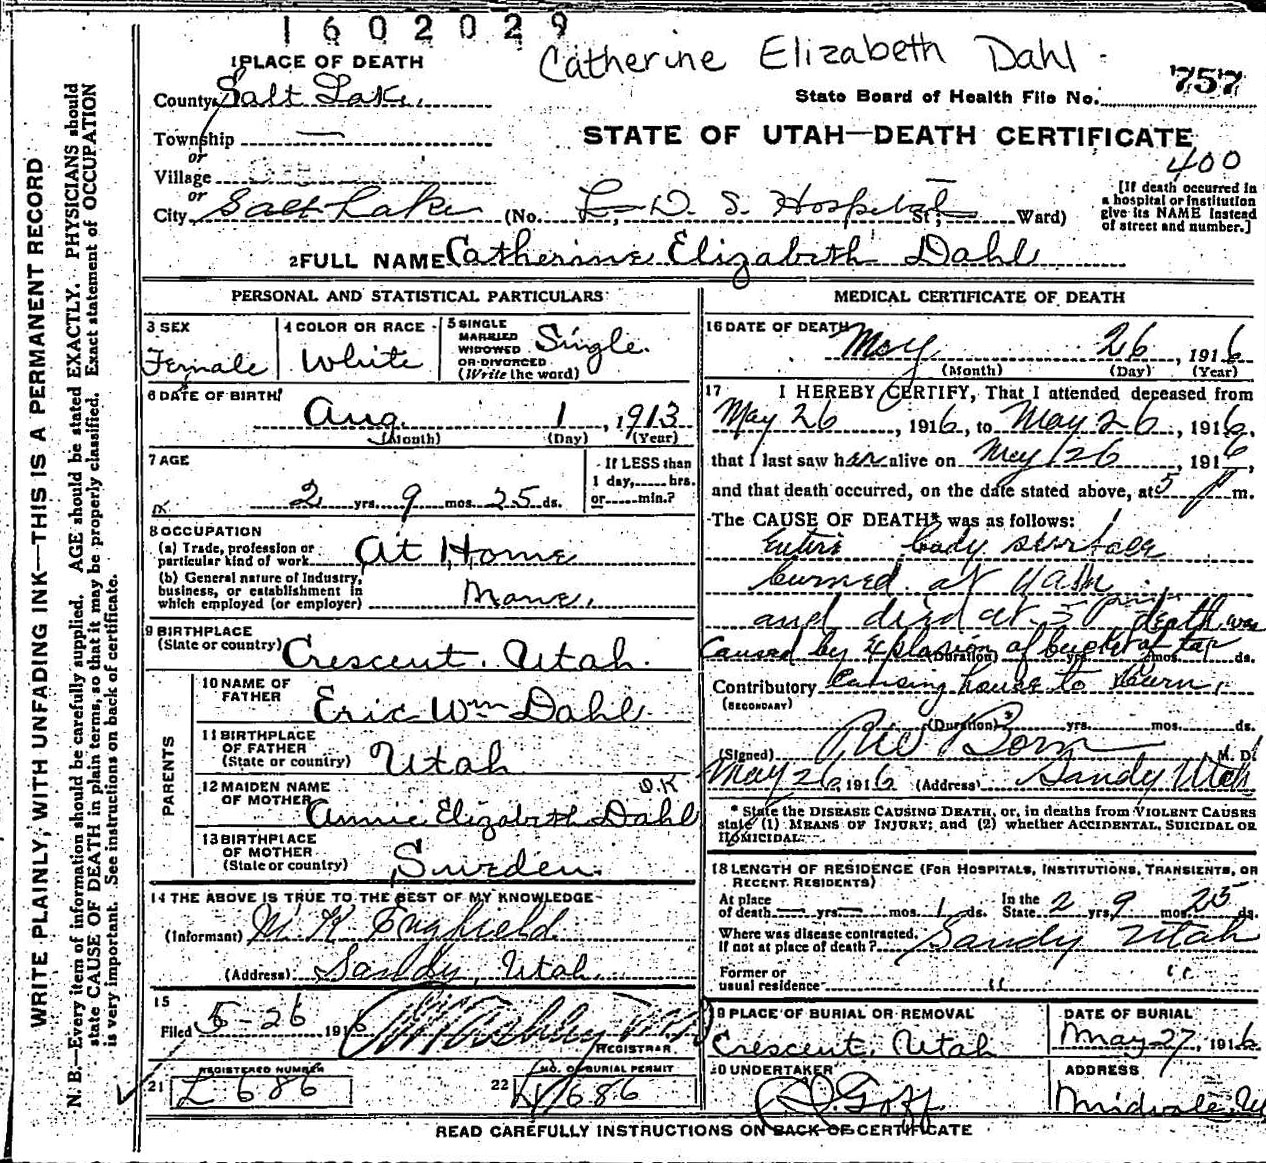 1602029
Catherine Elizabeth Dahl
1 PLACE OF DEATH
757
County Salt Lake
State Board of Health File No.
Township —
STATE OF UTAH—DEATH CERTIFICATE
or
400
Village
or
City Salt Lake (No. L. D. S. Hospital St., Ward)
[If death occurred in
a hospital or institution
give its NAME instead
of street and number.]
2 FULL NAME Catherine Elizabeth Dahl
PERSONAL AND STATISTICAL PARTICULARS
3 SEX
Female
4 COLOR OR RACE
White
5 SINGLE
MARRIED
WIDOWED
OR DIVORCED
(Write the word)
Single
6 DATE OF BIRTH
Aug. 1, 1913
(Month) (Day) (Year)
7 AGE
2 yrs. 9 mos. 25 ds.
If LESS than
1 day, hrs.
or min.?
8 OCCUPATION
(a) Trade, profession or
particular kind of work At Home
(b) General nature of Industry,
business, or establishment in
which employed (or employer)
9 BIRTHPLACE
(State or country) Crescent, Utah.
PARENTS
10 NAME OF
FATHER Eric Wm Dahl
11 BIRTHPLACE
OF FATHER
(State or country) Utah
12 MAIDEN NAME O.K
OF MOTHER Annie Elizabeth Dahl
13 BIRTHPLACE
OF MOTHER
(State or country) Sweden.
14 THE ABOVE IS TRUE TO THE BEST OF MY KNOWLEDGE
(Informant) M. K. Engfield
(Address) Sandy, Utah
15
Filed 5-26 1916
REGISTRAR
REGISTERED NUMBER
21 L 686
NO. OF BURIAL PERMIT
22 L 686
MEDICAL CERTIFICATE OF DEATH
16 DATE OF DEATH
May 26, 1916
(Month) (Day) (Year)
17 I HEREBY CERTIFY, That I attended deceased from
May 26, 1916, to May 26, 1916,
that I last saw her alive on May 26, 1916,
and that death occurred, on the date stated above, at 5 p m.
The CAUSE OF DEATH* was as follows:
Entire body surface
burned at 11 am
and died at 5 p death was
Caused by explosion of bucket of tar
(Duration) yrs. mos. ds.
Contributory causing house to burn.
(SECONDARY)
(Duration) yrs. mos. ds.
(Signed) M. D.
May 26, 1916 (Address) Sandy Utah
* State the DISEASE CAUSING DEATH, or, in deaths from VIOLENT CAUSES
state (1) MEANS OF INJURY; and (2) whether ACCIDENTAL, SUICIDAL OR
HOMICIDAL.
18 LENGTH OF RESIDENCE (FOR HOSPITALS, INSTITUTIONS, TRANSIENTS, OR
RECENT RESIDENTS)
At place
of death — yrs. — mos. 1 ds.
In the
State 2 yrs. 9 mos. 25 ds.
Where was disease contracted,
if not at place of death? Sandy Utah
Former or
usual residence " "
19 PLACE OF BURIAL OR REMOVAL
Crescent, Utah
DATE OF BURIAL
May 27, 1916
20 UNDERTAKER
Goff
ADDRESS
Midvale, U
READ CAREFULLY INSTRUCTIONS ON BACK OF CERTIFICATE
WRITE PLAINLY, WITH UNFADING INK—THIS IS A PERMANENT RECORD
N. B.—Every item of information should be carefully supplied. AGE should be stated EXACTLY. PHYSICIANS should
state CAUSE OF DEATH in plain terms, so that it may be properly classified. Exact statement of OCCUPATION
is very important. See instructions on back of certificate.